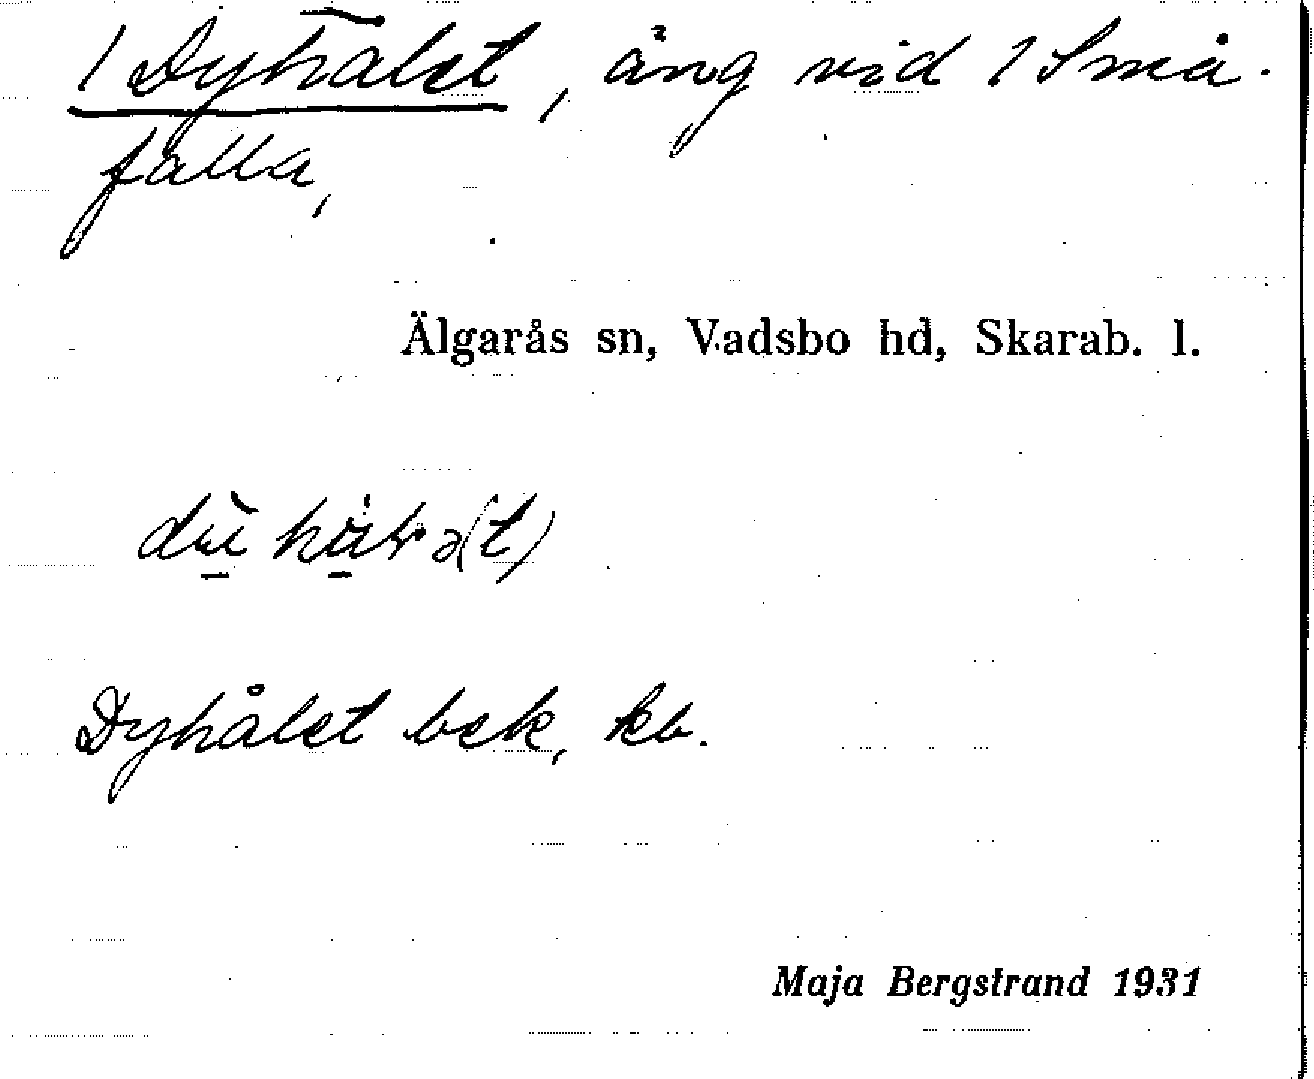 /Dyhålet, äng vid /Små-
falla,
Älgarås sn, Vadsbo hd, Skarab. l.
Dyhålet bek, kb.
Maja Bergstrand 1931